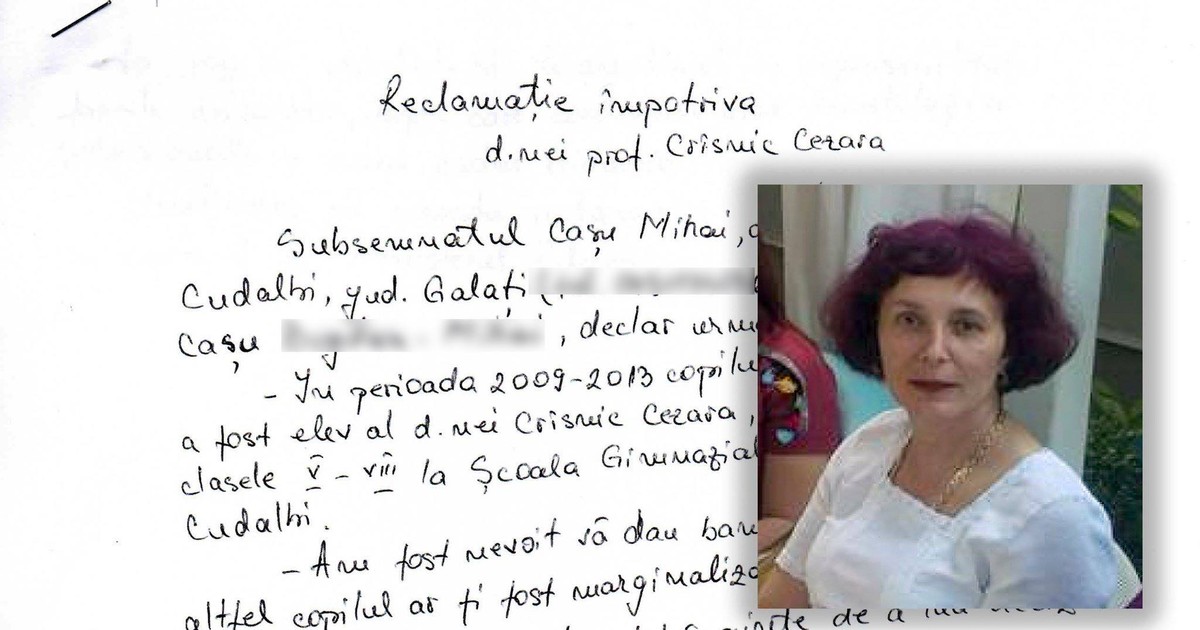 Reclamație împotriva
d.nei prof. Crisnic Cezara
Subsemnatul Cașu Mihai,
Cudalbi, jud. Galați
Cașu , declar
- În perioada 2009-2013
a fost elev al d.nei Crisnic Cezara,
clasele V - VIII la Școala
Cudalbi.
- Am fost nevoit să dau
altfel copilul ar fi fost
de a lua